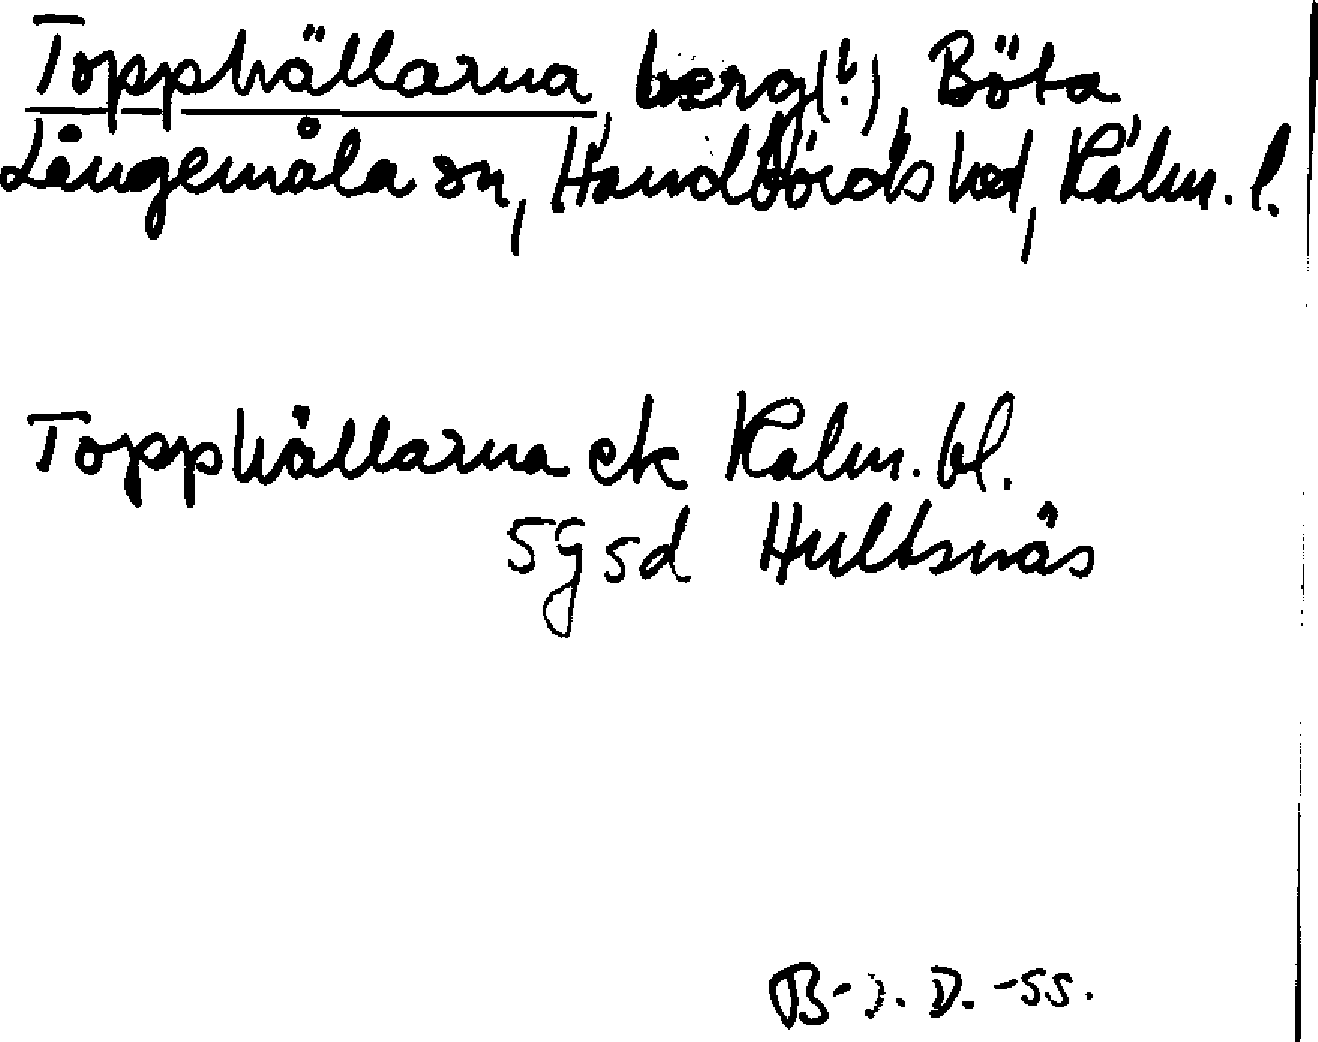 Topphällarna, berg(!), Böta
Långemåla sn, Handbörds hd, Kalm. l.
Topphällarna ek Kalm. bl.
5g5d Hultsnäs
B-J. D. -55.